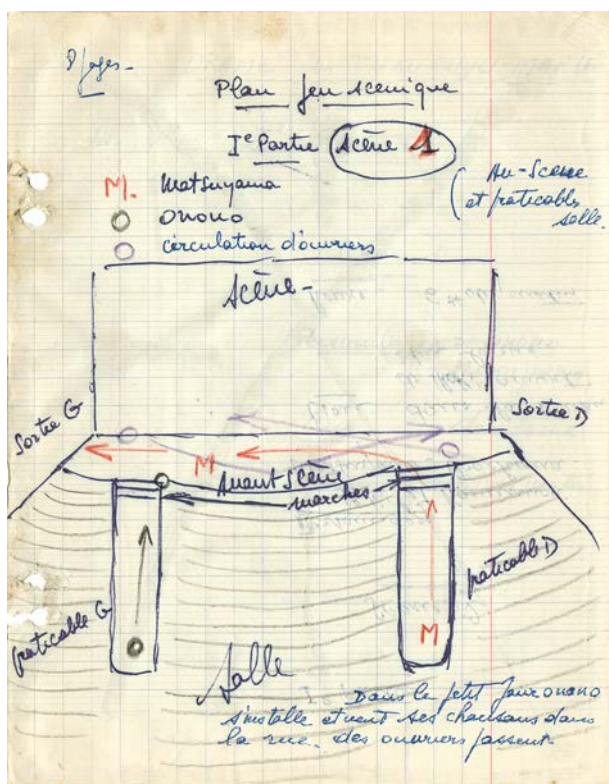 8 pages -
Plan jeu scenique
Iᵉ Partie Scène 1
M. Matsuyama
onono
circulation d'ouvriers
( Av-Scene
et praticables
salle.
Scène -
Sortie G
Sortie D
M
Avant Scène
marches
praticable G
praticable D
M
Salle
Dans le petit jour onono
s'installe et vent ses chaussons dans
la rue. des ouvriers passent-